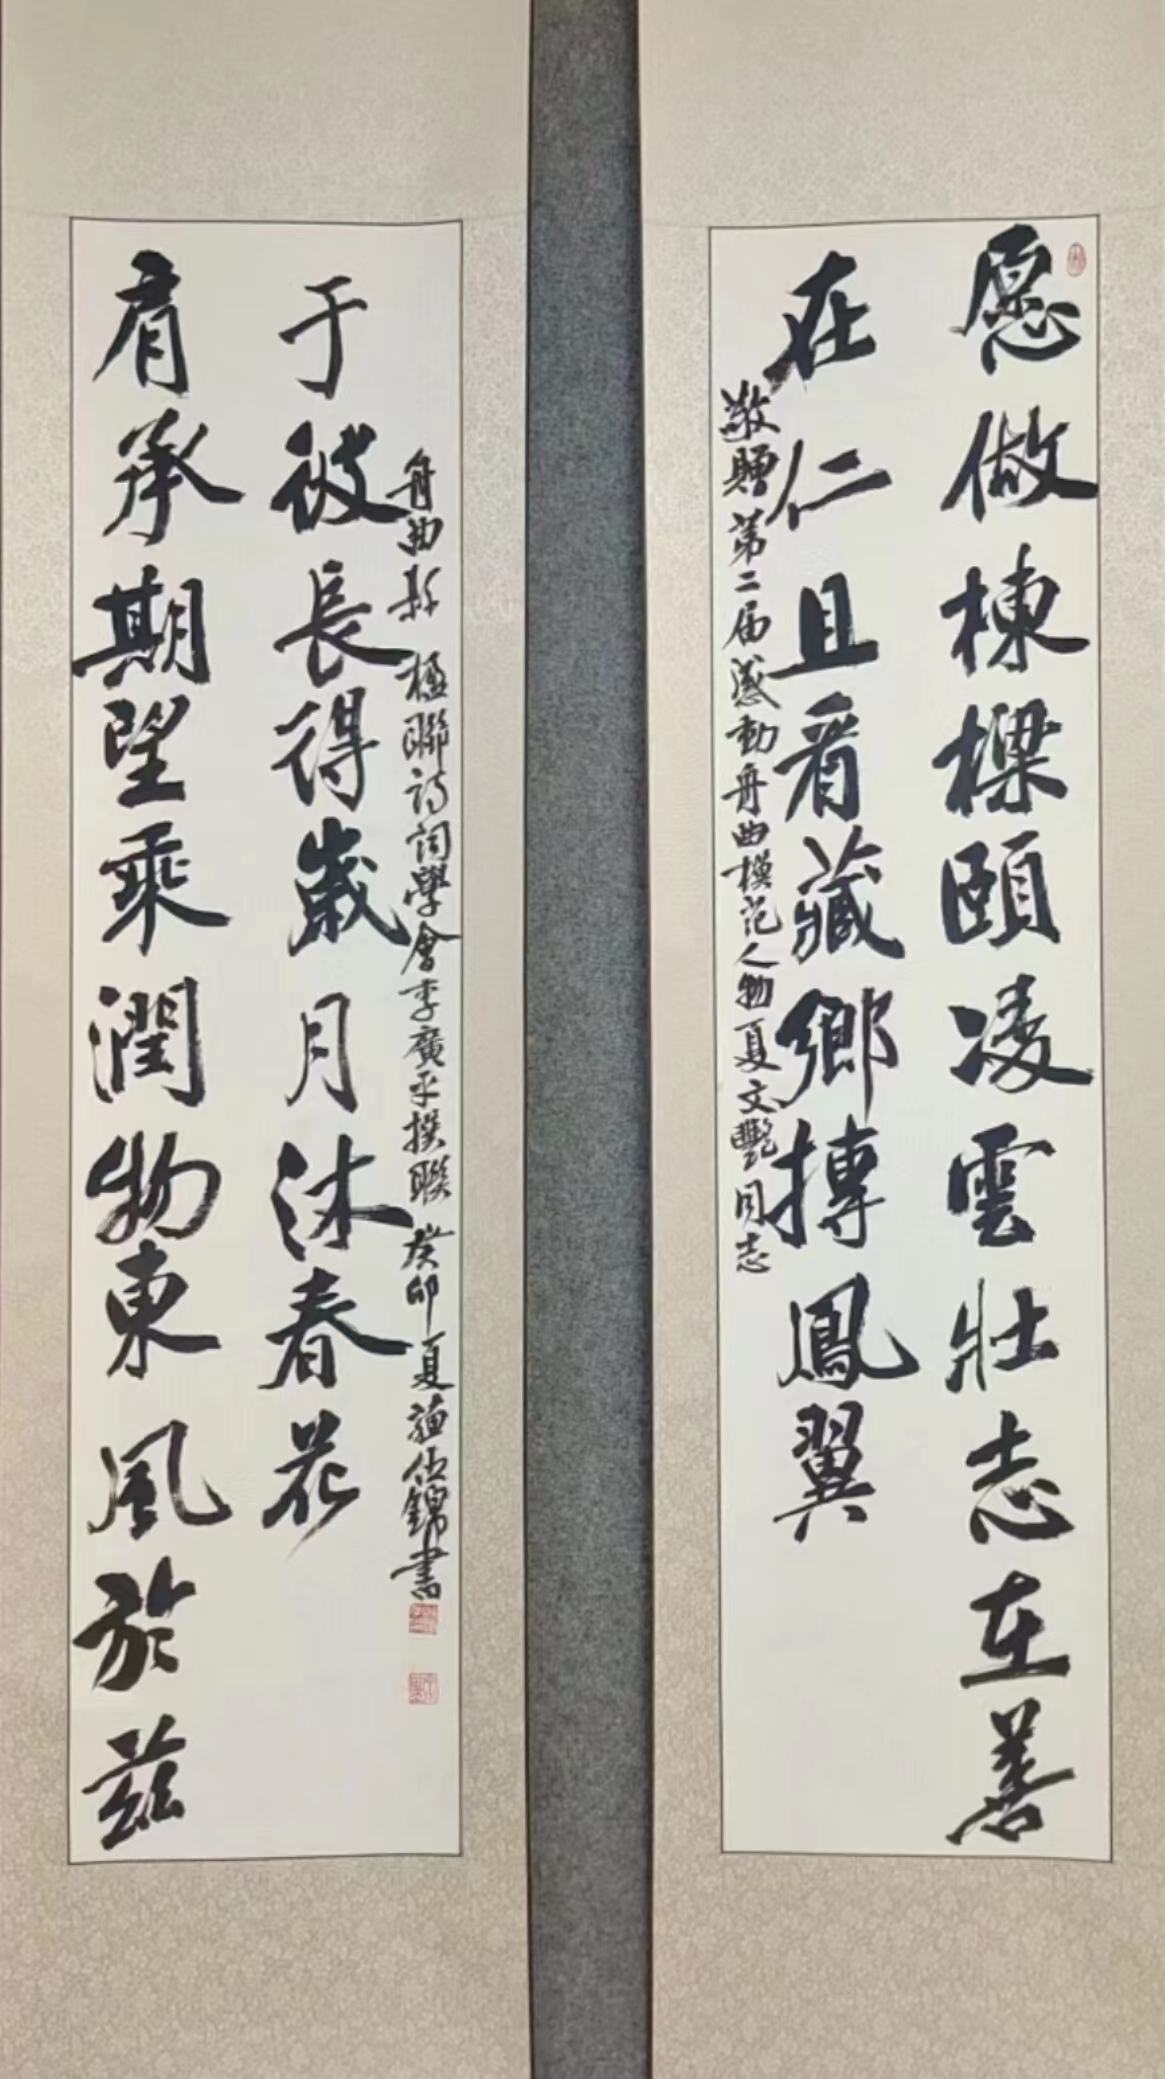 愿做棟樑頤凌雲壯志在善
在仁且看藏鄉搏鳳翼
敬贈第二届感動舟曲模范人物夏文艷同志
肩承期望乘潤物東風於兹
于彼長得歲月沐春花
舟曲縣楹聯诗词學會李廣平撰聯 癸卯夏 錦書